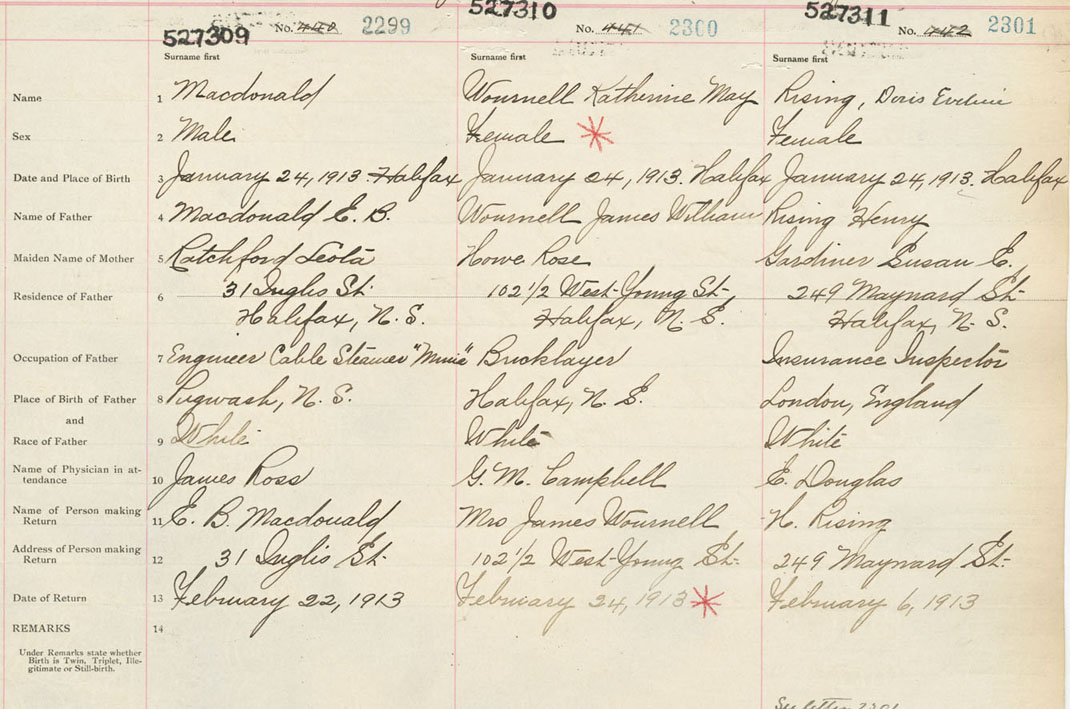 527309 No. 440 2299 527310 No. 441 2300 527311 No. 442 2301
Surname first Surname first Surname first
Name 1 Macdonald Wournell Katherine May Rising, Doris Eveline
Sex 2 Male Female Female
Date and Place of Birth 3 January 24, 1913 Halifax January 24, 1913. Halifax January 24, 1913. Halifax
Name of Father 4 Macdonald E. B. Wournell James William Rising Henry
Maiden Name of Mother 5 Ratchford Leota Howe Rose Gardiner Susan E.
Residence of Father 6 31 Inglis St. 102 1/2 West-Young St., 249 Maynard St.
Halifax, N. S. Halifax, N. S. Halifax, N. S.
Occupation of Father 7 Engineer Cable Steamer "Minia" Bricklayer Insurance Inspector
Place of Birth of Father 8 Pugwash, N. S. Halifax, N. S. London, England
and
Race of Father 9 White White White
Name of Physician in at-
tendance 10 James Ross G. M. Campbell E. Douglas
Name of Person making
Return 11 E. B. Macdonald Mrs James Wournell H. Rising
Address of Person making
Return 12 31 Inglis St. 102 1/2 West-Young St. 249 Maynard St.
Date of Return 13 February 22, 1913 February 24, 1913 February 6, 1913
REMARKS 14
Under Remarks state whether
Birth is Twin, Triplet, Ille-
gitimate or Still-birth.
See letter 2301